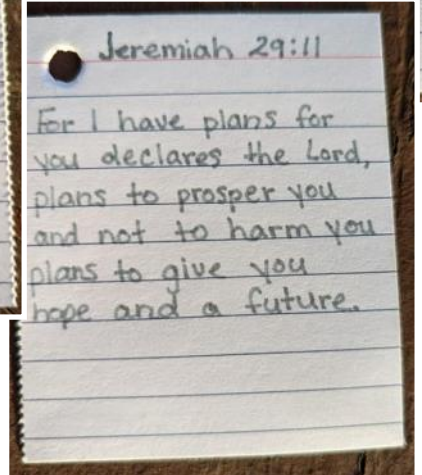 Jeremiah 29:11
For I have plans for
you declares the Lord,
plans to prosper you
and not to harm you
plans to give you
hope and a future.